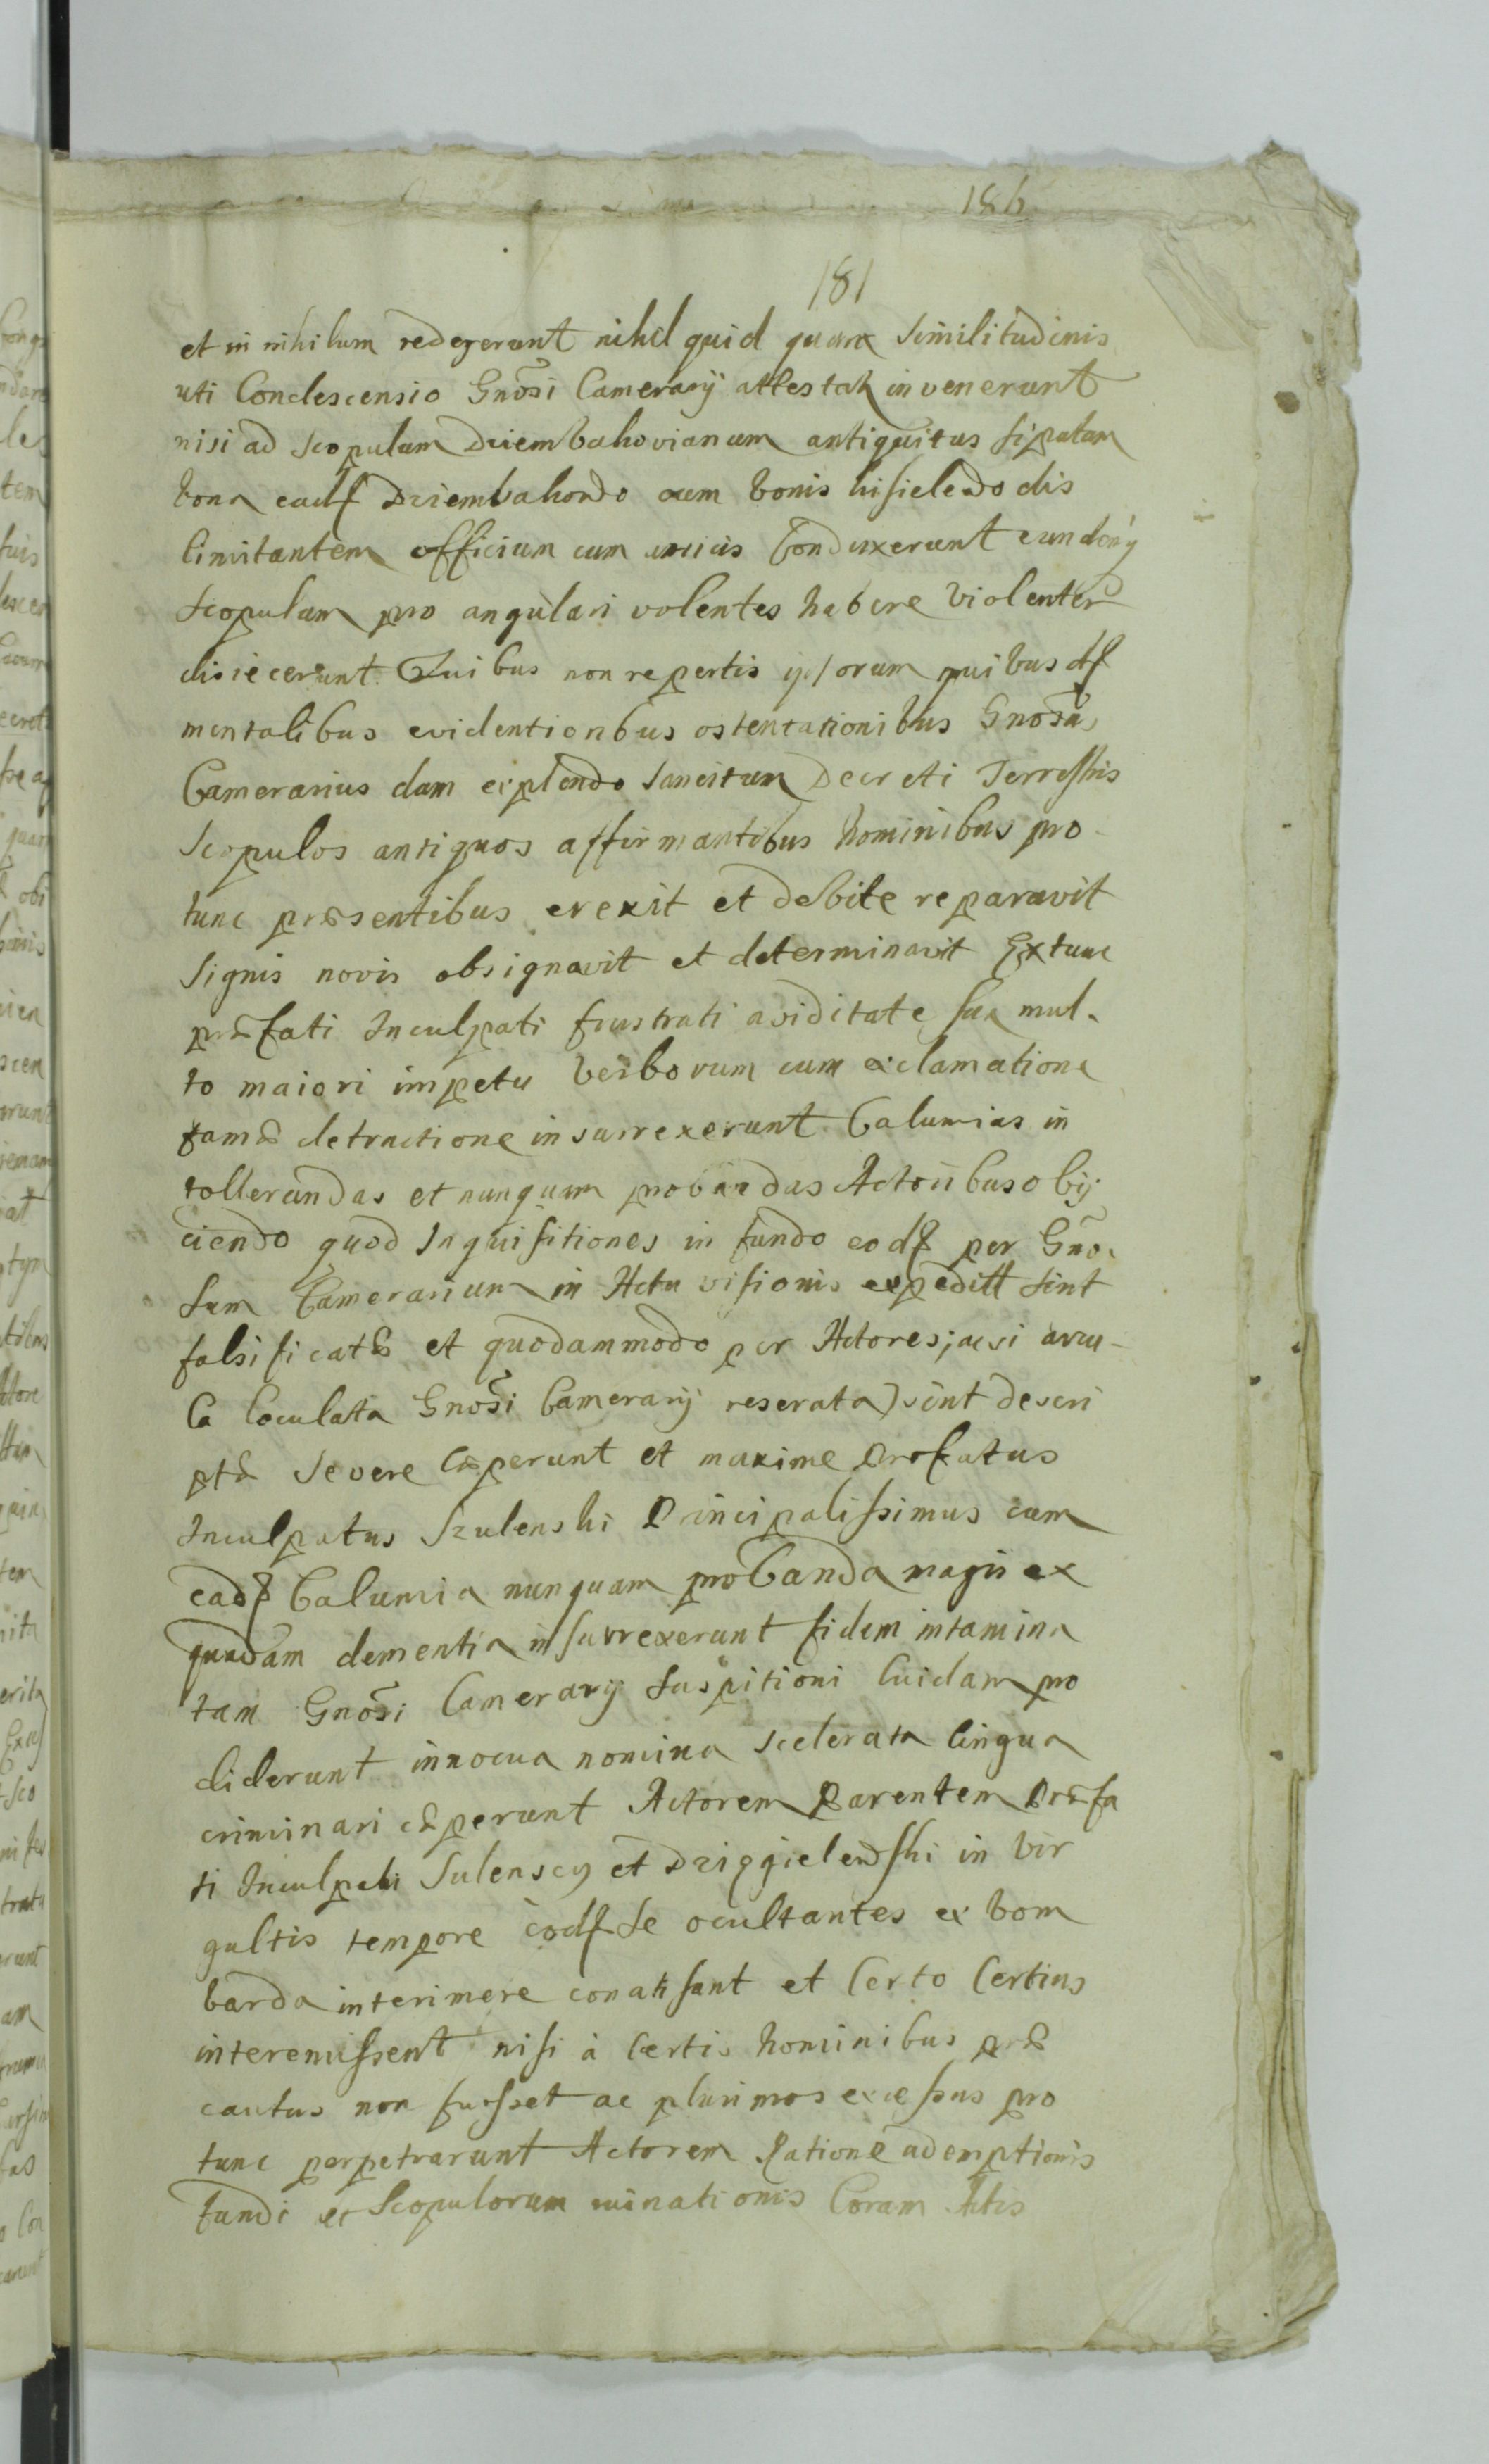 186
181
et in nihilum redegerunt nihil quid quam similitudinis
uti Condescensio Gnosi Camerarij attestatr invenerunt
nisi ad scopulum Dziembakovianum antiquitus sipatum
bona eadf Dziembakowo cum bonis kisielewo dis
limitantem officium cum amicis Conduxerunt eundemq
scopulum pro angulari volentes habere Violenter
disiecerunt Quibus non repertis ipsorum quibusdf
mentalibus evidentioribus ostentationibus Gnosus
Camerarius dum explendo sancitum Decreti Terrestris
Scopulos antiquos affirmantibus hominibus pro
tunc præsentibus erexit et debite reparavit
signis novis obsignavit et determinavit Extunc
præfati Inculpati frustrati aviditate sua mul
to maiori impetu Verborum cum exclamatione
famæ detractione insurrexerunt Calumias in
tollerandas et nunquam probandas Actoribus obij
ciendo quod Inquisitiones in fundo eodf per Gno
sum Camerarium in Actu visionis expeditæ sint
falsificatæ et quodammodo per Actores; acsi arcu-
la loculata Gnosi Camerarij reserata) sint descri
ptæ severe cæperunt et maxime Præfatus
Inculpatus Szulenski Principalissimus cum
eadf Calumia nunquam probanda magis ex
quadam dementia insurrexerunt fidem intamina
tam Gnosi Camerarij suspitioni Cuidam pro
diderunt innocua nomina scelerata lingua
criminari cæperunt Actorem Parentem Præfa
ti Inculpati Sulenscy et Dziggielewski in Vir
gultis tempore eodf se ocultantes ex bom
barda interimere conati sunt et Certo Certius
interemissent nisi à Certis hominibus præ
cautus non fuisset ac plurimos excessus pro
tunc perpetrarunt Actorem Ratione ademptionis
fundi et Scopulorum ruinationis Coram Actis